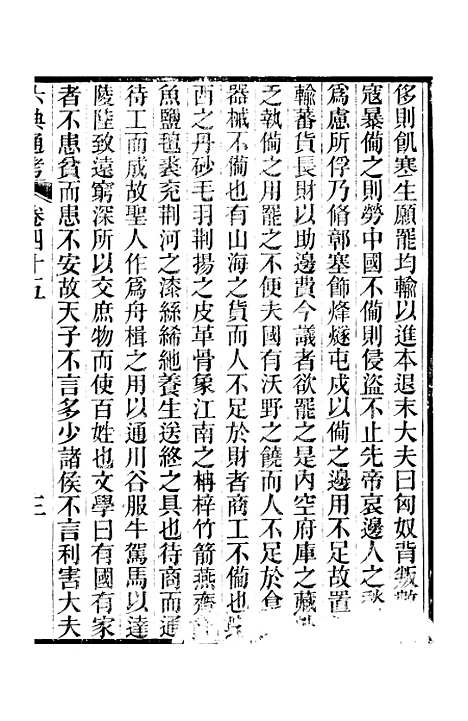 侈則飢寒生願罷均輸以進本退末大夫曰匈奴背叛
寇暴備之則勞中國不備則侵盜不止先帝哀邊人之
爲慮所俘乃脩鄣塞飾烽燧屯戍以備之邊用不足故置
輸蓄貨長財以助邊費今議者欲罷之是内空府庫之藏
乏執備之用罷之不便夫國有沃野之饒而人不足於食
器械不備也有山海之貨而人不足於財者商工不備也
西之丹砂毛羽荆揚之皮革骨象江南之柟梓竹箭燕齊
魚鹽氊裘兖荆河之漆絲絺紽養生送終之具也待商而通
待工而成故聖人作爲舟楫之用以通川谷服牛駕馬以達
陵陸致遠窮深所以交庶物而使百姓也文學曰有國有家
者不患貧而患不安故天子不言多少諸侯不言利害大夫
六典通考 卷四十五 三